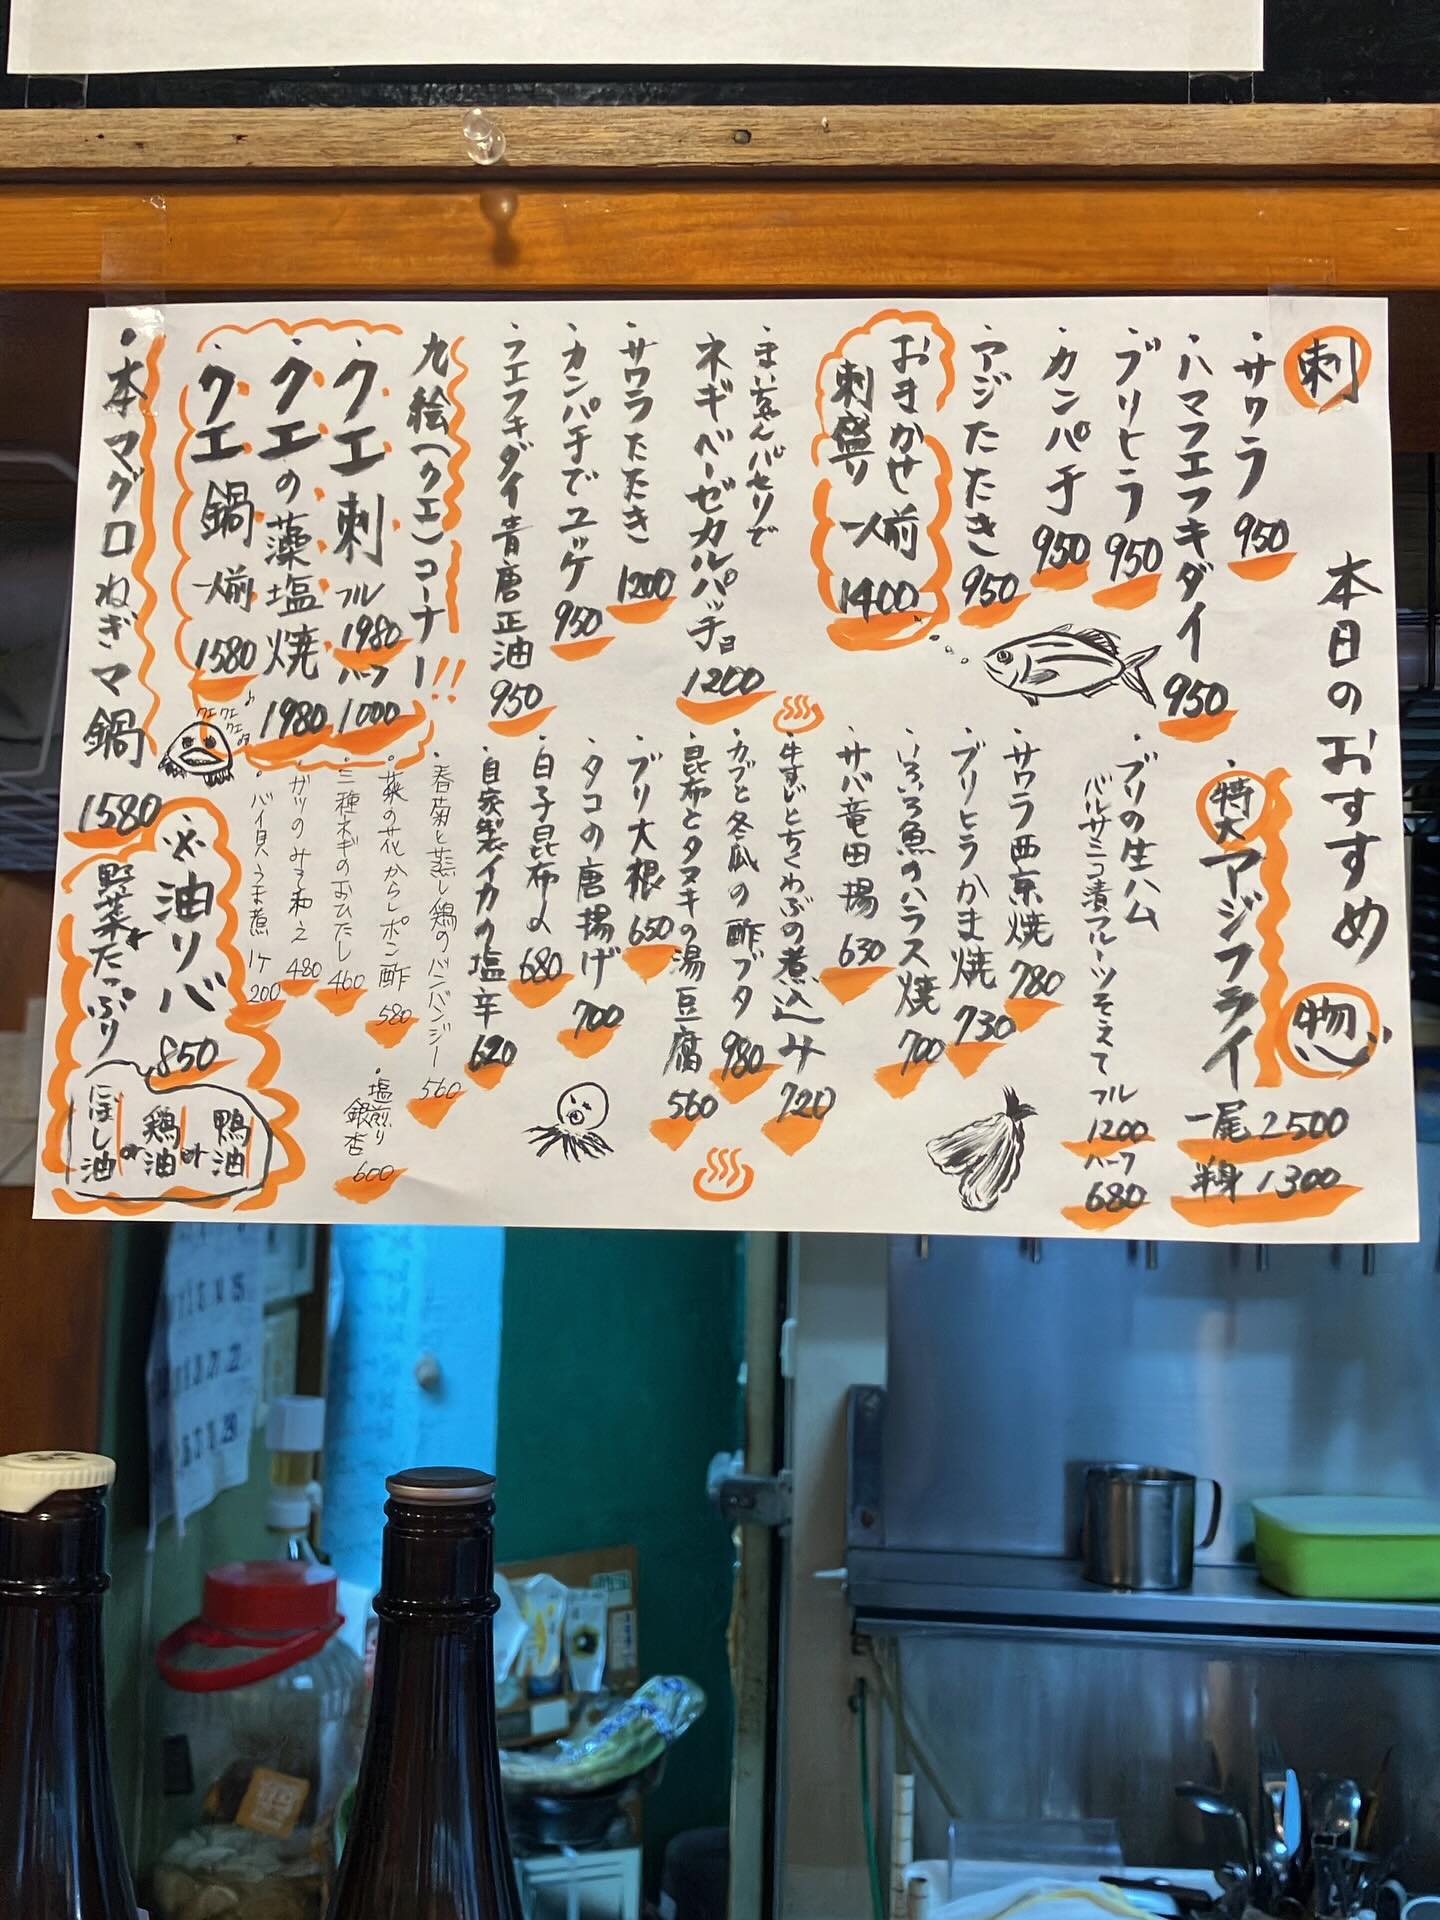 本日のおすすめ
刺
・サワラ 950
・ハマフエフキダイ 950
・ブリヒラ 950
・カンパチ 950
・アジたたき 950
おまかせ刺盛り 一人前 1400
・まいちゃんパセリで
ネギベーゼカルパッチョ 1200
・サワラたたき 1200
・カンパチでユッケ 950
・フエフキダイ青唐正油 950
九絵(クエ)コーナー!!
・クエ刺 フル 1980 ハーフ 1000
・クエの藁塩焼 1980
・クエ鍋 一人前 1580
クエ クエ クエッ♪
・本マグロねぎマ鍋 1580
物
・特大アジフライ 一尾 2500
半身 1300
・ブリの生ハム
バルサミコ漬フルーツそえて フル 1200 ハーフ 680
・サワラ西京焼 780
・ブリヒラかま焼 730
・いろいろ魚のハラス焼 700
・サバ竜田揚 630
・牛すじとちくわぶの煮込み 720
・カブと冬瓜の酢ブタ 980
・昆布とタヌキの湯豆腐 560
・ブリ大根 650
・タコの唐揚げ 700
・白子昆布〆 680
・自家製イカの塩辛 620
・春菊と蒸し鶏のバンバンジー 560
・菜の花からしポン酢 580
・塩煎り銀杏 600
・三種ネギのおひたし 460
・ガツのみそ和え 480
・バイ貝うま煮 1ケ 200
油ソバ 850
野菜たっぷり
鴨油 or 鶏油 or にぼし油